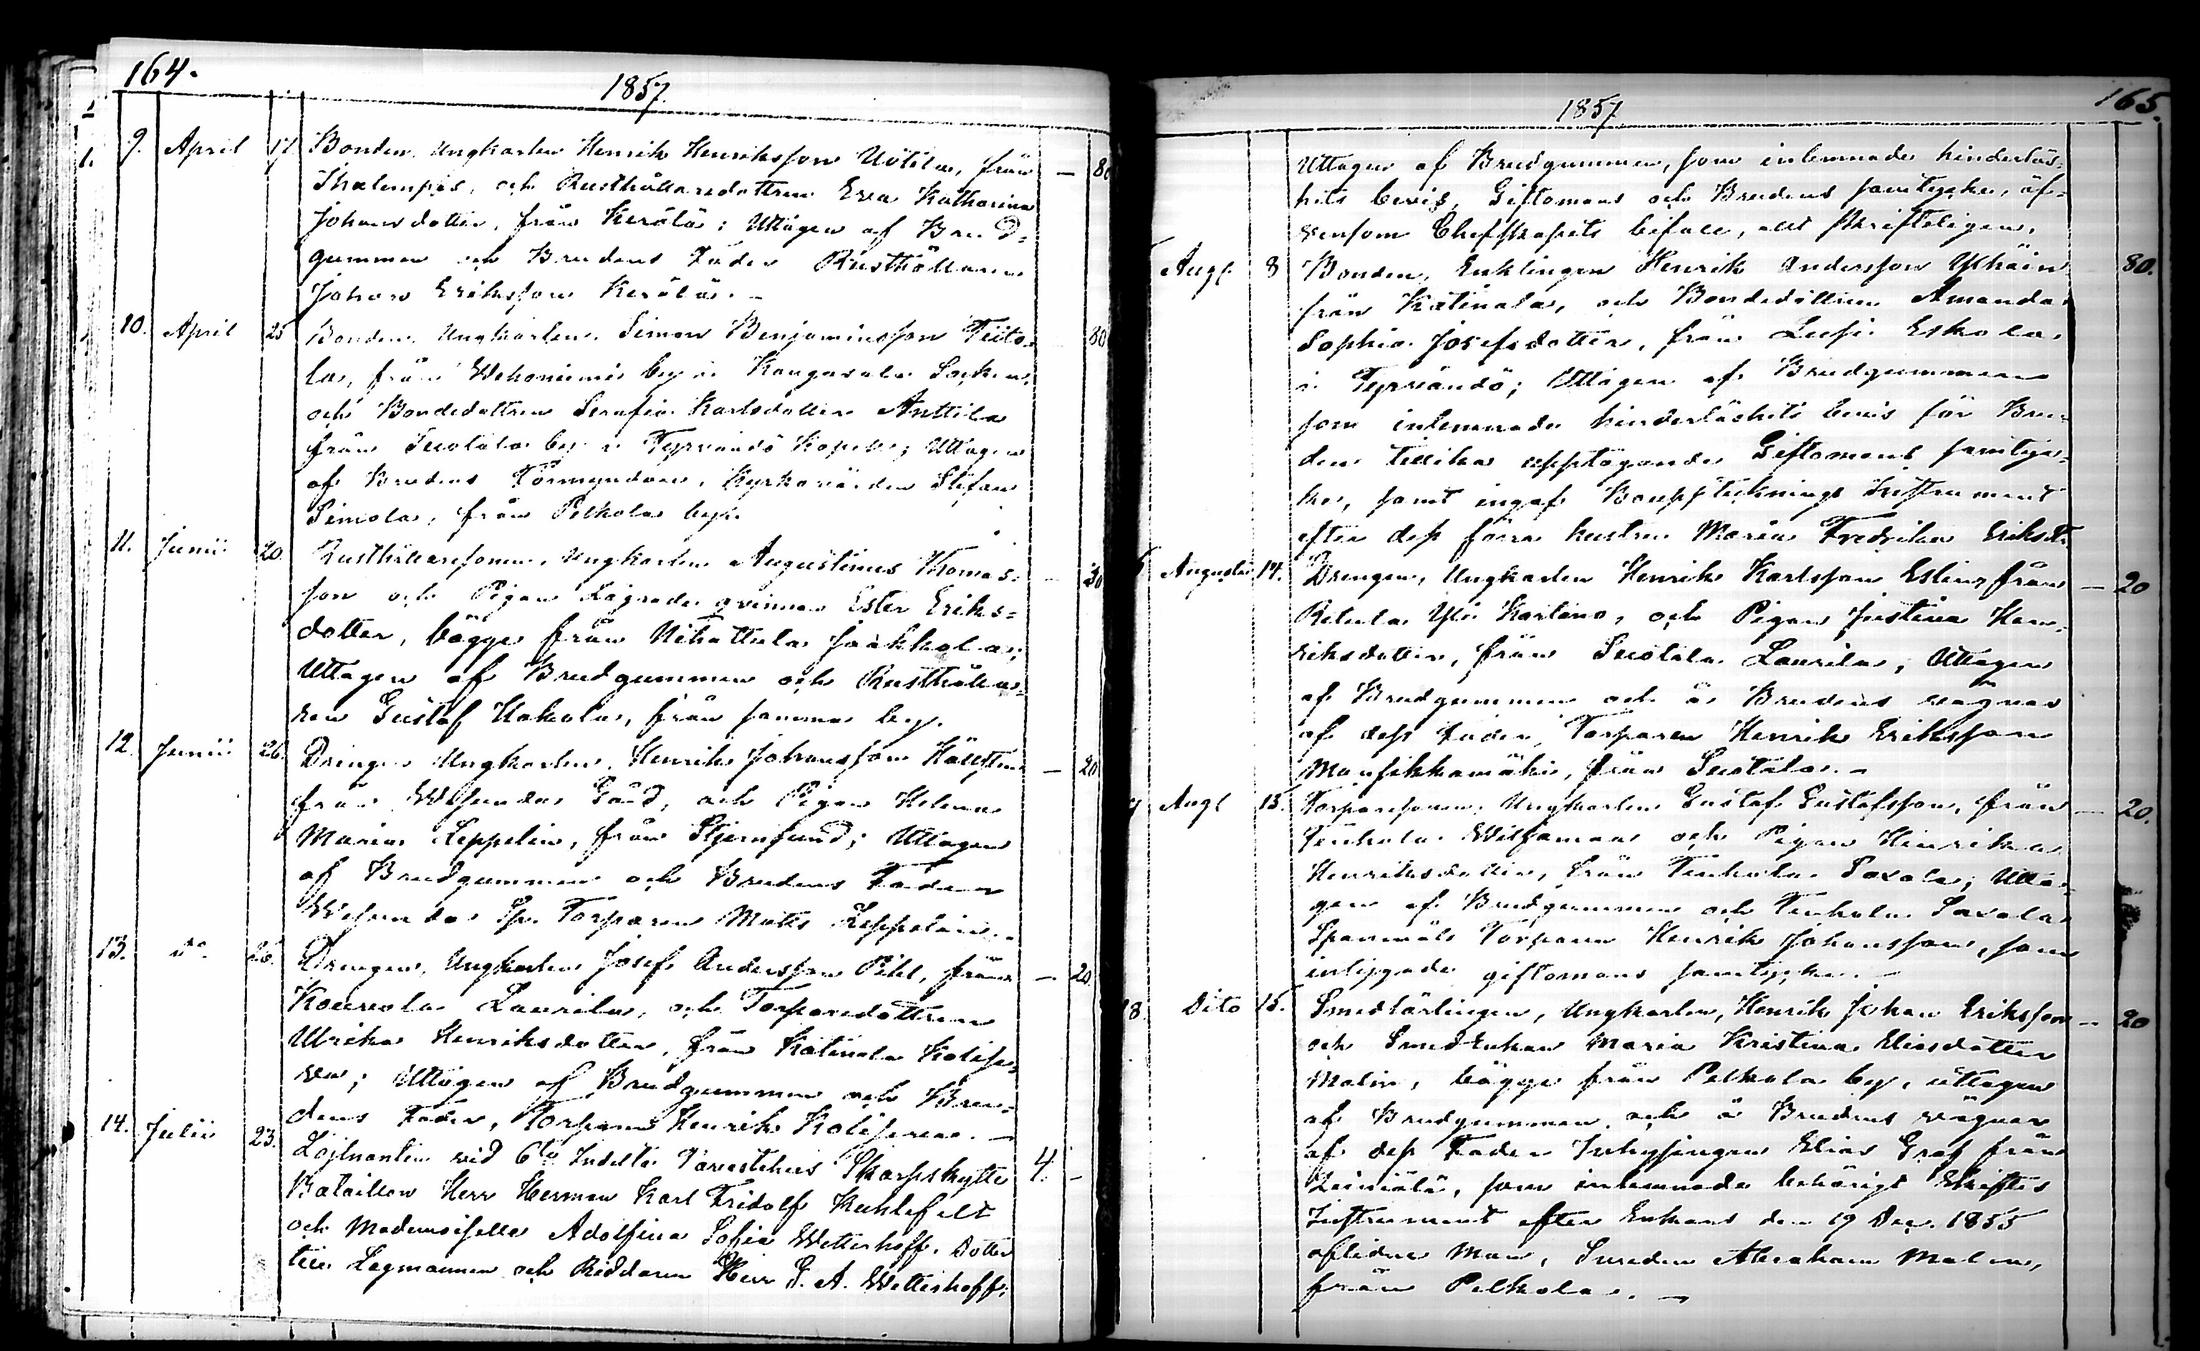 164.
1857
9. April 17. Bonden, Ungkarlen Henrik Henriksson Uotila, från — 80
Ihalempis, och Rusthållaredottren Eva Katharina
Johansdotter, från Kerälä; Uttagen af Brud-
gummen och Brudens Fader Rusthållaren
Johan Eriksson Kerälä. —
10. April 25 Bonden, Ungkarlen Simon Benjaminsson Tiito- 80
la, från Wehoniemi by i Kangasala Socken,
och Bondedottren Serafia Karlsdotter Anttila
från Suotala by i Tyrvändö Kapell; Uttagen
af Brudens Förmyndare, Kyrkovärden Stefan
Simola, från Pelkola by.
11. Junii 20. Rusthållaresonen, Ungkarlen Augustinus Thomas- — 30
son och Pigan Lägrade qvinnan Ester Eriks-
dotter, bägge från Uihattula Jaakkola;
Uttagen af Brudgummen och Rusthålla-
ren Gustaf Kakola, från samma by.
12. Junii 26. Drängen Ungkarlen, Henrik Johansson Hällsten — 20
från Wesunda Gård, och Pigan Helena
Maria Leppelin, från Stjernsund; Uttagen
af Brudgummen och Brudens Fader
Wesunda Sp. Torparen Mats Leppelin. —
13. do. 26. Drengen, Ungkarlen Josef Andersson Pihl, från — 20.
Kourvola Laurila, och Torparedottren
Ulrika Henriksdotter, från Katinala Kolise-
va; Uttagen af Brudgummen och Bru-
dens Fader, Torparen Henrik Koliseva. —
14. Julii 23. Löjtnanten vid 6te Indelta Tavastehus Skarpskytte 4. —
Bataillon Herr Herman Karl Fridolf Kuhlefelt
och Mademoiselle Adolfina Sofia Wetterhoff, Dotter
till Lagmannen och Riddaren Herr G. A. Wetterhoff;
165.
1857
Uttagen af Brudgummen, som inlemnade hinderlös-
hets bevis, Giftomans och Brudens samtycke, äf-
vensom Chefskapets bifall, allt skrifteligen.
Augs. 8 Bonden, Enklingen Henrik Andersson Yhäin 80.
från Katinala, och Bondedottren Amanda
Sophia Josefsdotter, från Lusi Eskola
i Tyrvändö; Uttagen af Brudgummen
som inlemnade hinderlöshets bevis för Bru-
den tillika upptagande Giftomans samtyc-
ke, samt ingaf Bouppteknings Instrument
efter dess förra hustru Maria Fredrika Eriksdr.
6 Augusti 14. Drengen, Ungkarlen Henrik Karlsson Esling från — 20
Retula Yli Kartano, och Pigan Justina Hen-
riksdotter, från Suotala Laurila; Uttagen
af Brudgummen och å Brudens vägnar
af dess Fader, Torparen Henrik Eriksson
Mansikkamäki, från Suotala. —
7 Augs 15. Torparesonen, Ungkarlen Gustaf Gustafsson, från — 20.
Tenhola Wiljamaa och Pigan Henrika
Henriksdotter, från Tenhola Saxala; Utta-
gen af Brudgummen och Tenhola Saxala
Spanmåls Torparen Henrik Johansson, som
intygade giftomans samtycke. —
18. Dito 15. Smedlärlingen, Ungkarlen, Henrik Johan Eriksson — 20
och Smed Enkan Maria Kristina Eliasdotter
Malin, bägge från Pelkola by, uttagen
af Brudgummen, och å Brudens vägnar
af dess Fader Inhysingen Elias Graf från
Leiniälä, som inlemnade behörigt Skiftes
Instrument efter Enkans den 19 Dec. 1855
aflidne Man, Smeden Abraham Malin,
från Pelkola. —